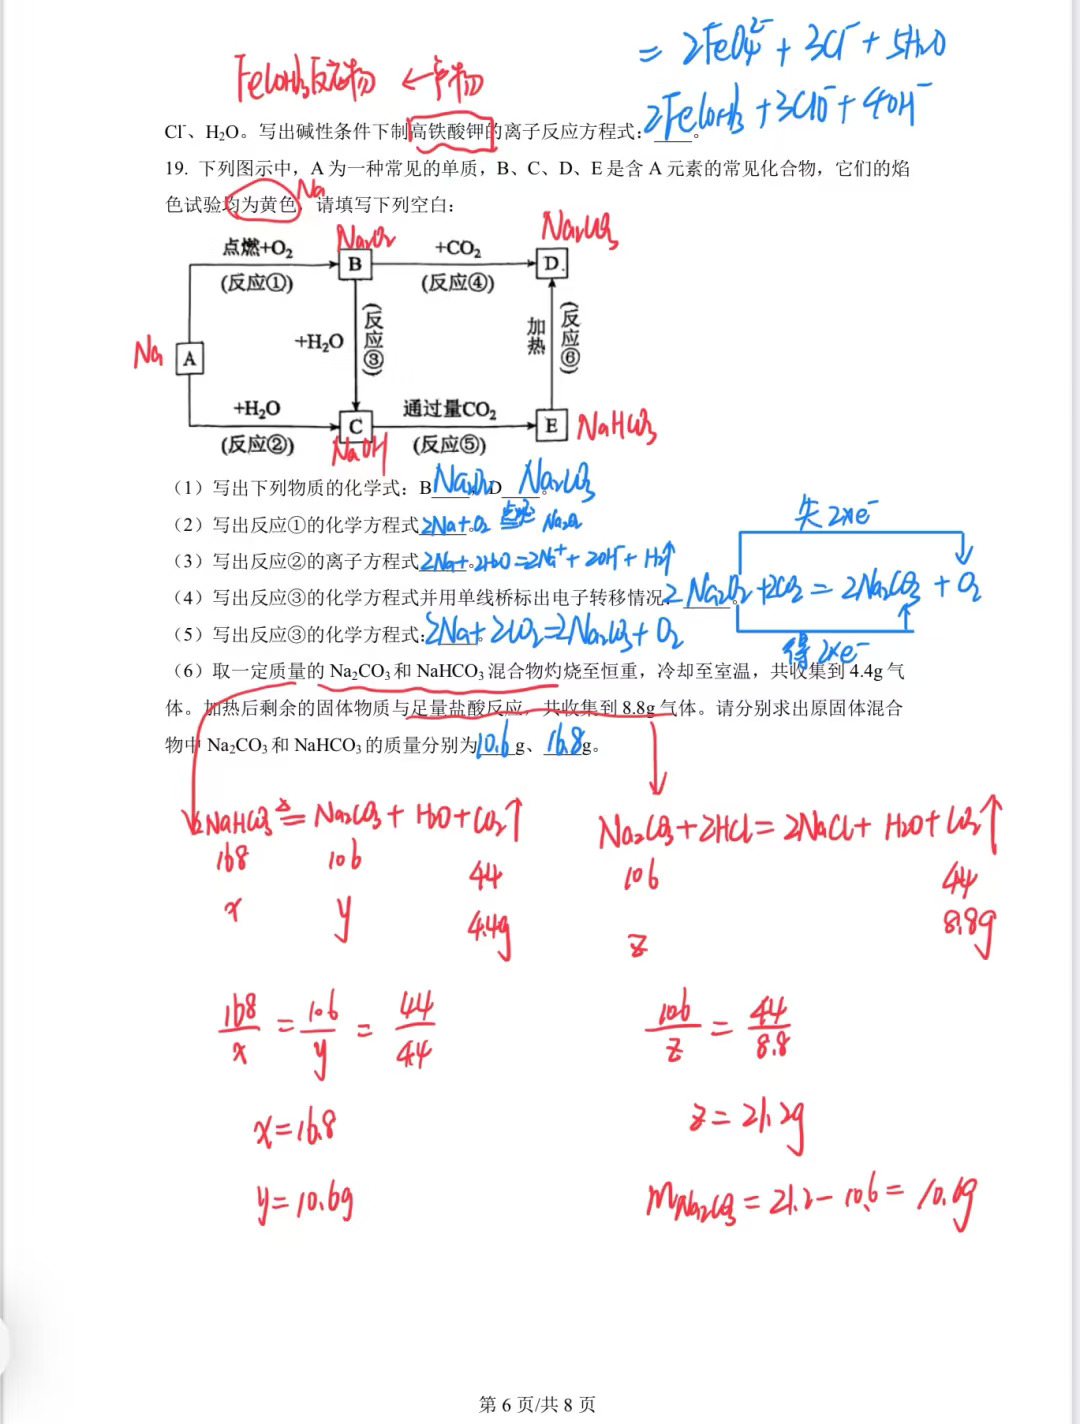 = 2FeO₄²⁻ + 3Cl⁻ + 5H₂O
Fe(OH)₃反应物 ← 产物
2Fe(OH)₃ + 3ClO⁻ + 4OH⁻
Cl⁻、H₂O。写出碱性条件下制高铁酸钾的离子反应方程式:____。
19. 下列图示中，A 为一种常见的单质，B、C、D、E 是含 A 元素的常见化合物，它们的焰
Na
色试验均为黄色，请填写下列空白：
Na₂O₂
Na₂CO₃
点燃+O₂
(反应①)
B
+CO₂
(反应④)
D
+H₂O
(反应③)
加热
(反应⑥)
Na
A
+H₂O
(反应②)
C
NaOH
通过量CO₂
(反应⑤)
E
NaHCO₃
（1）写出下列物质的化学式：B Na₂O₂ D Na₂CO₃。
（2）写出反应①的化学方程式 2Na+O₂ 点燃 Na₂O₂
（3）写出反应②的离子方程式 2Na+2H₂O=2Na⁺+2OH⁻+H₂↑
失2xe⁻
（4）写出反应③的化学方程式并用单线桥标出电子转移情况 2Na₂O₂+2CO₂=2Na₂CO₃+O₂
得2xe⁻
（5）写出反应③的化学方程式: 2Na+2CO₂=2Na₂CO₃+O₂
（6）取一定质量的 Na₂CO₃ 和 NaHCO₃ 混合物灼烧至恒重，冷却至室温，共收集到 4.4g 气
体。加热后剩余的固体物质与足量盐酸反应，共收集到 8.8g 气体。请分别求出原固体混合
物中 Na₂CO₃ 和 NaHCO₃ 的质量分别为 10.6 g、 16.8 g。
2NaHCO₃ ≜ Na₂CO₃ + H₂O + CO₂↑
168 106 44
x y 4.4g
168/x = 106/y = 44/4.4
x=16.8
y=10.6g
Na₂CO₃+2HCl=2NaCl+H₂O+CO₂↑
106 44
z 8.8g
106/z = 44/8.8
z=21.2g
mNa₂CO₃ = 21.2-10.6= 10.6g
第 6 页/共 8 页